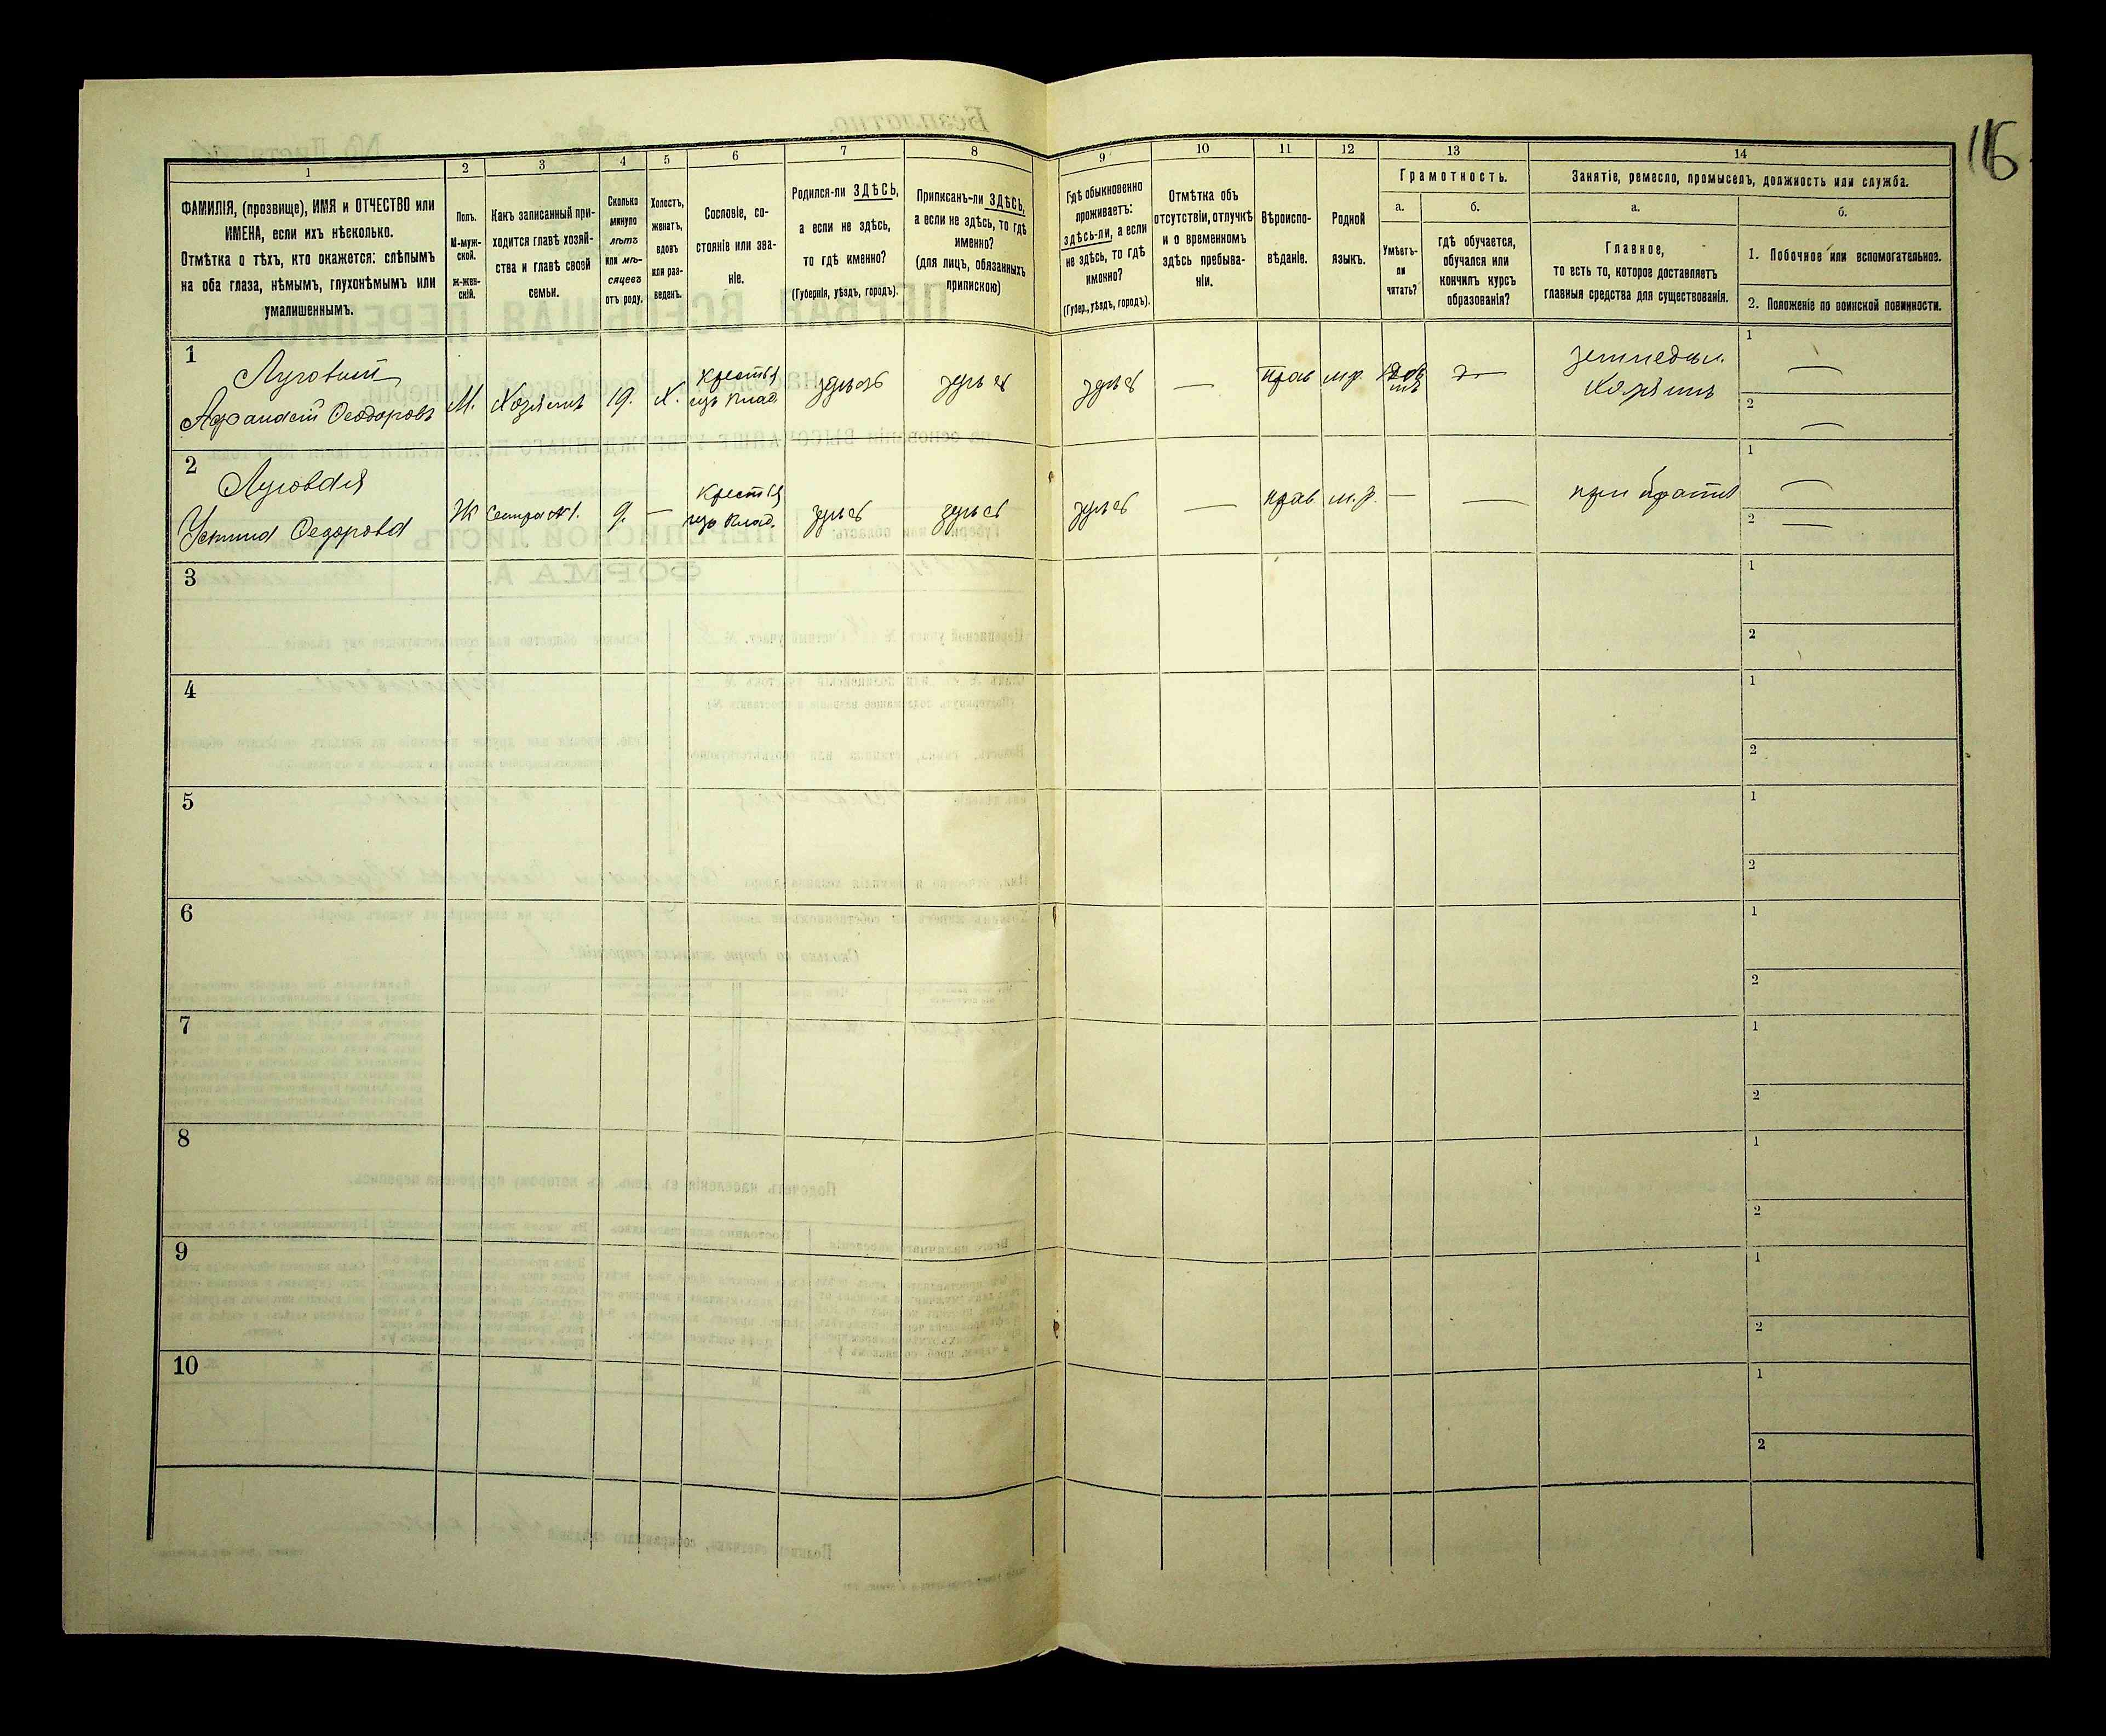 116
1 2 3 4 5 6 7 8 9 10 11 12 13 14
ФАМИЛІЯ, (прозвище), ИМЯ и ОТЧЕСТВО или
ИМЕНА, если ихъ нѣсколько.
Отмѣтка о тѣхъ, кто окажется: слѣпымъ
на оба глаза, нѣмымъ, глухонѣмымъ или
умалишеннымъ.
Полъ.
М-муж-
ской.
ж-жен-
скій.
Какъ записанный при-
ходится главѣ хозяй-
ства и главѣ своей
семьи.
Сколько
минуло
лѣтъ
или мѣ-
сяцевъ
отъ роду.
Холостъ,
женатъ,
вдовъ
или раз-
веденъ.
Сословіе, со-
стояніе или зва-
ніе.
Родился-ли ЗДѢСЬ,
а если не здѣсь,
то гдѣ именно?
(Губернія, уѣздъ, городъ).
Приписанъ-ли ЗДѢСЬ,
а если не здѣсь, то гдѣ
именно?
(для лицъ, обязанныхъ
припискою)
Гдѣ обыкновенно
проживаетъ:
здѣсь-ли, а если
не здѣсь, то гдѣ
именно?
(Губер., уѣздъ, городъ).
Отмѣтка объ
отсутствіи, отлучкѣ
и о временномъ
здѣсь пребыва-
ніи.
Вѣроиспо-
вѣданіе.
Родной
языкъ.
Грамотность.
а.
Умѣетъ-
ли
читать?
б.
гдѣ обучается,
обучался или
кончилъ курсъ
образованія?
Занятіе, ремесло, промыселъ, должность или служба.
а.
Главное,
то есть то, которое доставляетъ
главныя средства для существованія.
б.
1. Побочное или вспомогательное.
2. Положеніе по воинской повинности.
1
Луговий
Афанасій Феодоровъ
М.
Хозяинъ
19.
Х.
Крестья
изъ Влад.
здѣсь
здѣсь
здѣсь
—
прав
м.р.
—
земледѣл.
Хозяинъ
1 —
2 —
2
Луговая
Устина Федорова
Ж
Сестра №1.
9.
—
Крестья
изъ Влад.
здѣсь
здѣсь
здѣсь
—
прав
м.р.
—
—
при братѣ
1 —
2 —
3
1
2
4
1
2
5
1
2
6
1
2
7
1
2
8
1
2
9
1
2
10
1
2